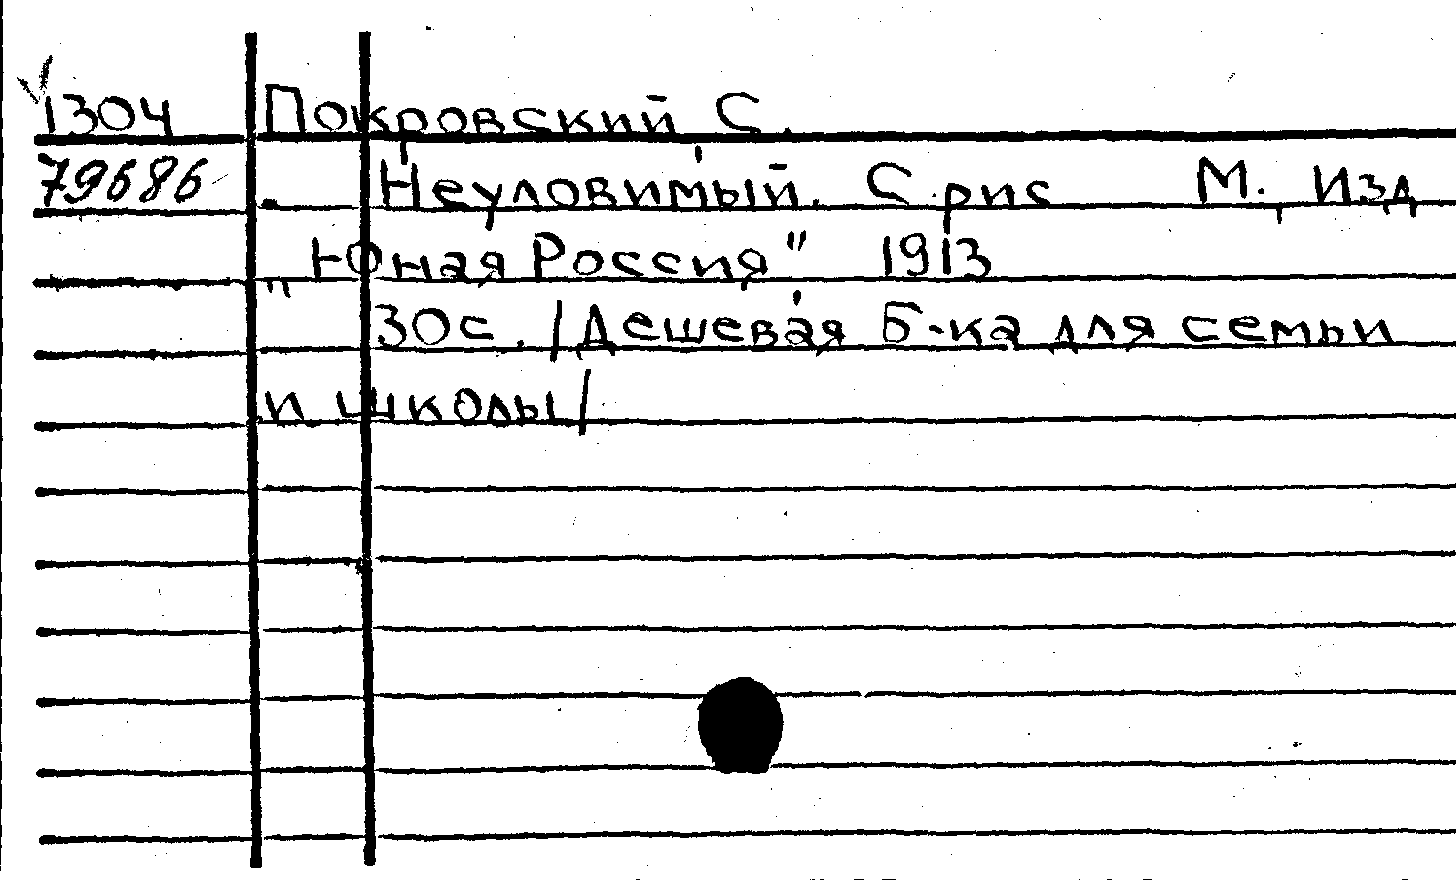 1304 Покровский С.
79686 Неуловимый. С рис М., Изд
„Юная Россия" 1913
30с. /Дешевая Б-ка для семьи
и школы/